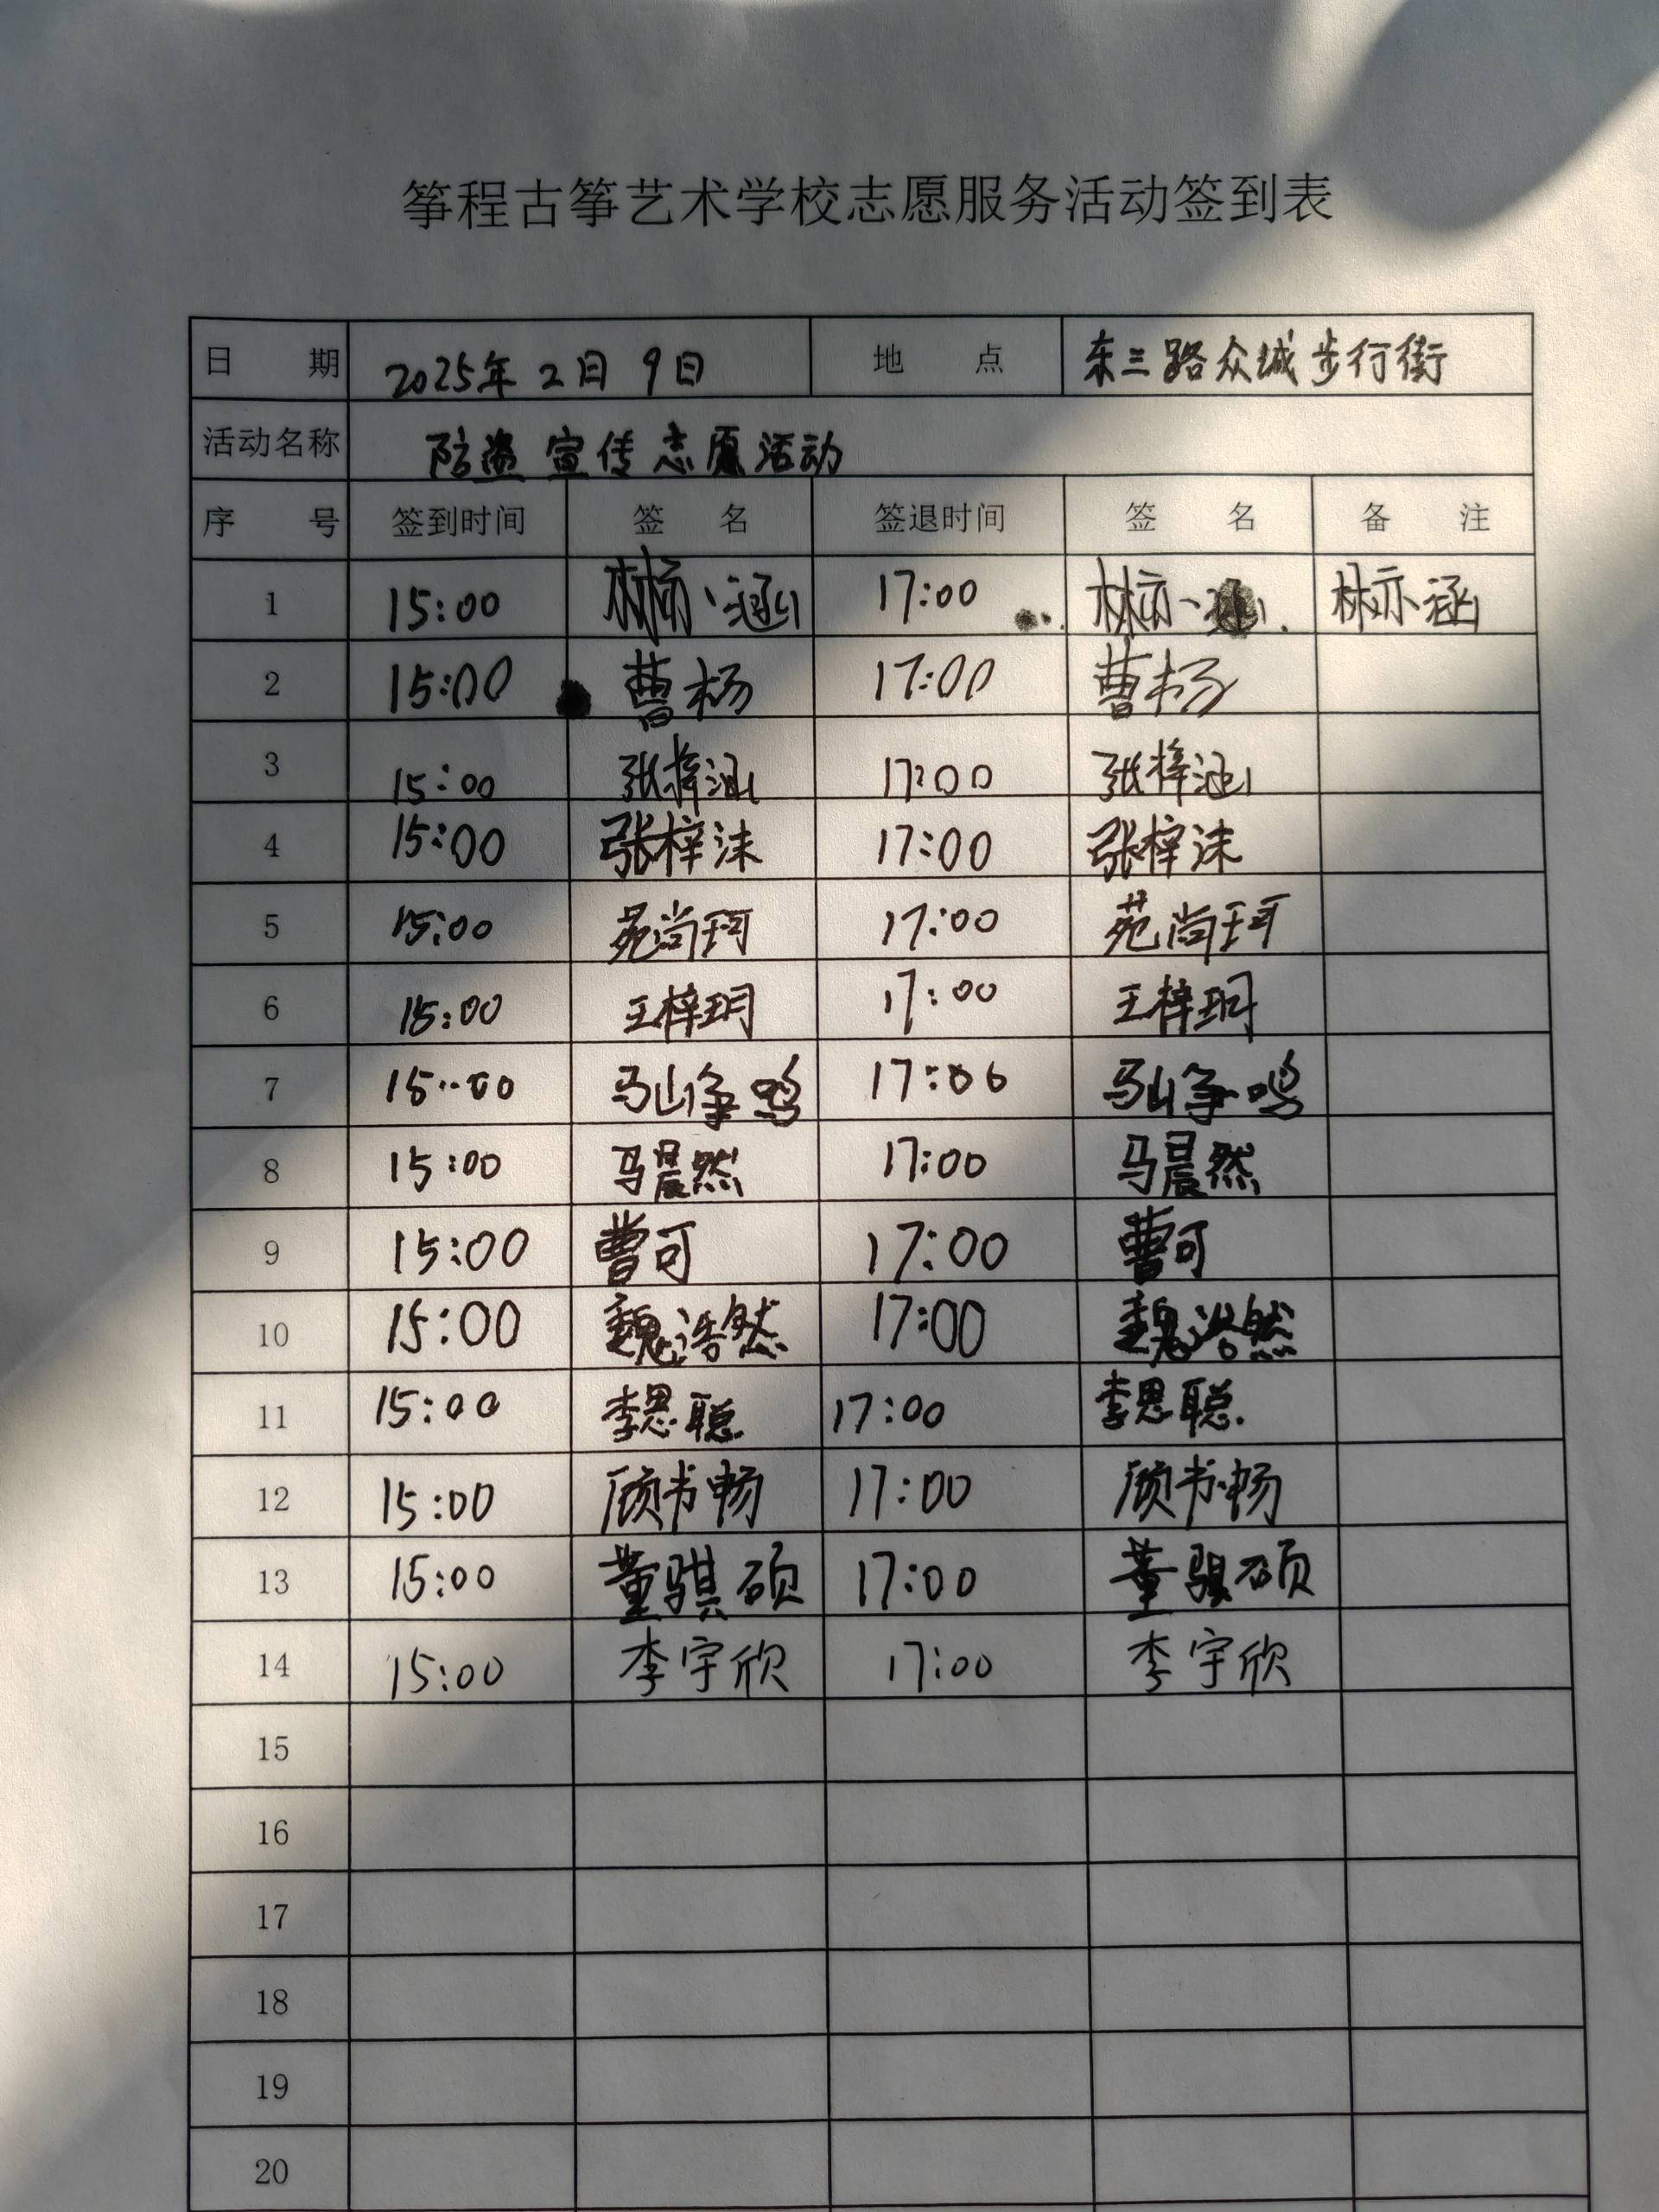 筝程古筝艺术学校志愿服务活动签到表
日 期 2025年2月9日 地 点 东三路众城步行街
活动名称 防盗宣传志愿活动
序 号 签到时间 签 名 签退时间 签 名 备 注
1 15:00 林亦涵 17:00 林亦涵 林亦涵
2 15:00 曹杨 17:00 曹杨
3 15:00 张梓涵 17:00 张梓涵
4 15:00 张梓沫 17:00 张梓沫
5 15:00 苑尚珂 17:00 苑尚珂
6 15:00 王梓玥 17:00 王梓玥
7 15:00 马山争鸣 17:00 马山争鸣
8 15:00 马晨然 17:00 马晨然
9 15:00 曹可 17:00 曹可
10 15:00 魏浩然 17:00 魏浩然
11 15:00 李思聪 17:00 李思聪
12 15:00 顾书畅 17:00 顾书畅
13 15:00 董骐硕 17:00 董骐硕
14 15:00 李宇欣 17:00 李宇欣
15
16
17
18
19
20